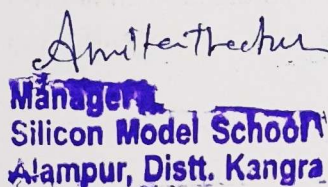 Manager
Silicon Model School
Alampur, Distt. Kangra